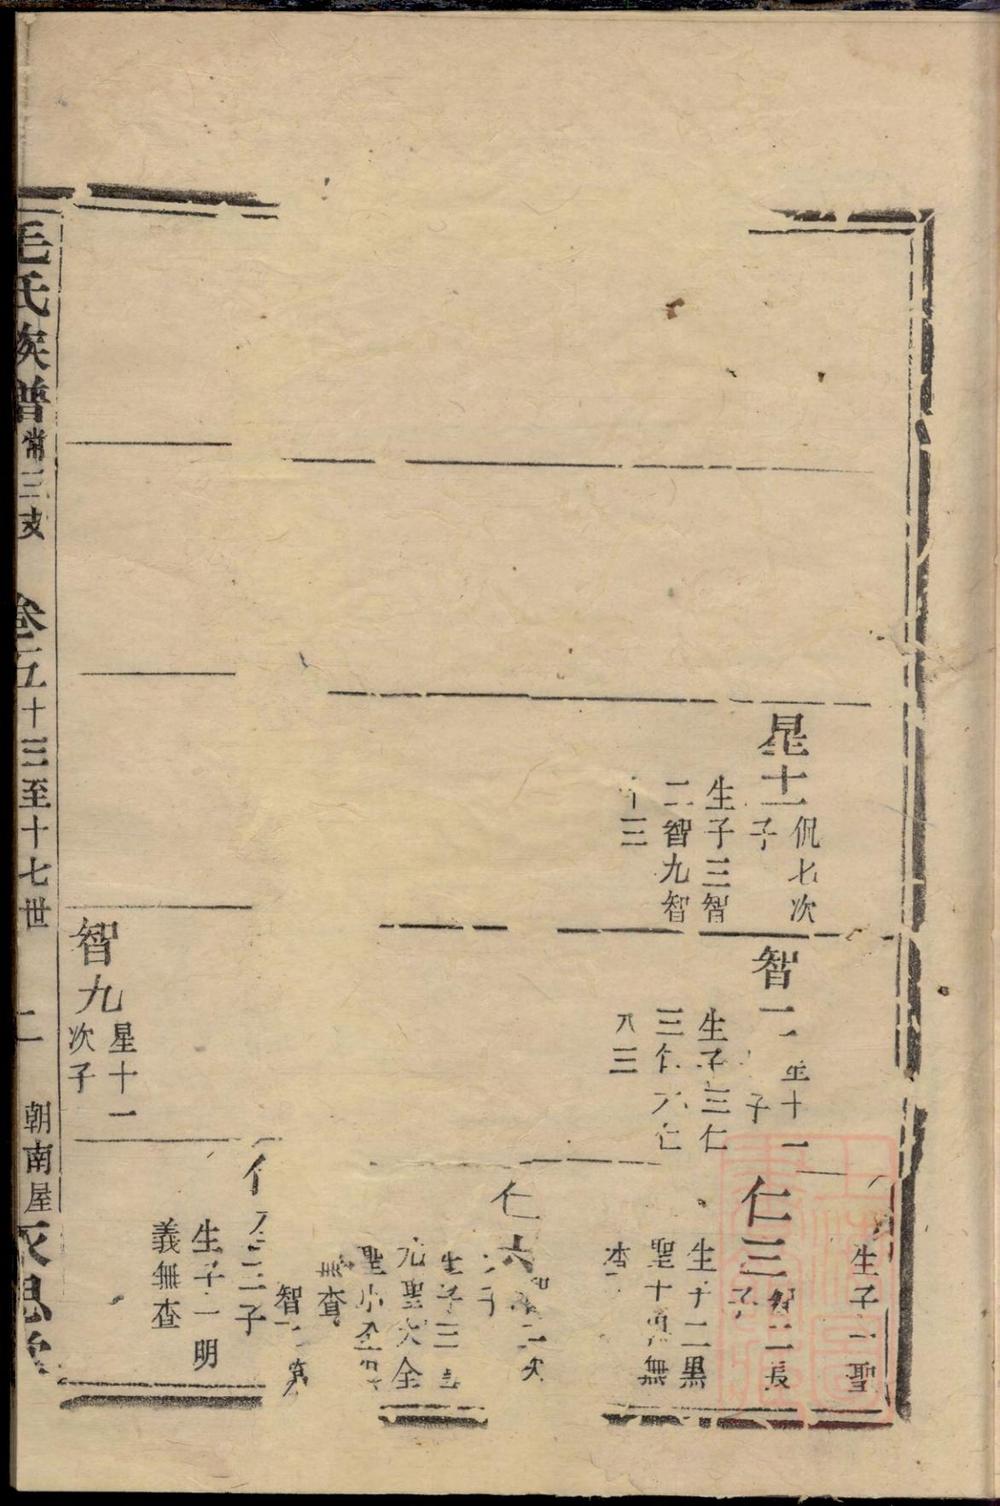 星十一
侃七次
子
生子三智
二智九智
十三
智二
星十一
子
生子三仁
三仁六仁
八三
生子一聖
仁三
智二長
子
生子二黑
聖十貞無
查
仁六
智二次
子
生子三
元聖大全
聖小全
無查
智二第
三子
生子一明
義無查
智九
星十一
次子
毛氏族譜
常三支
卷五
十三至十七世
二
朝南屋
永思堂